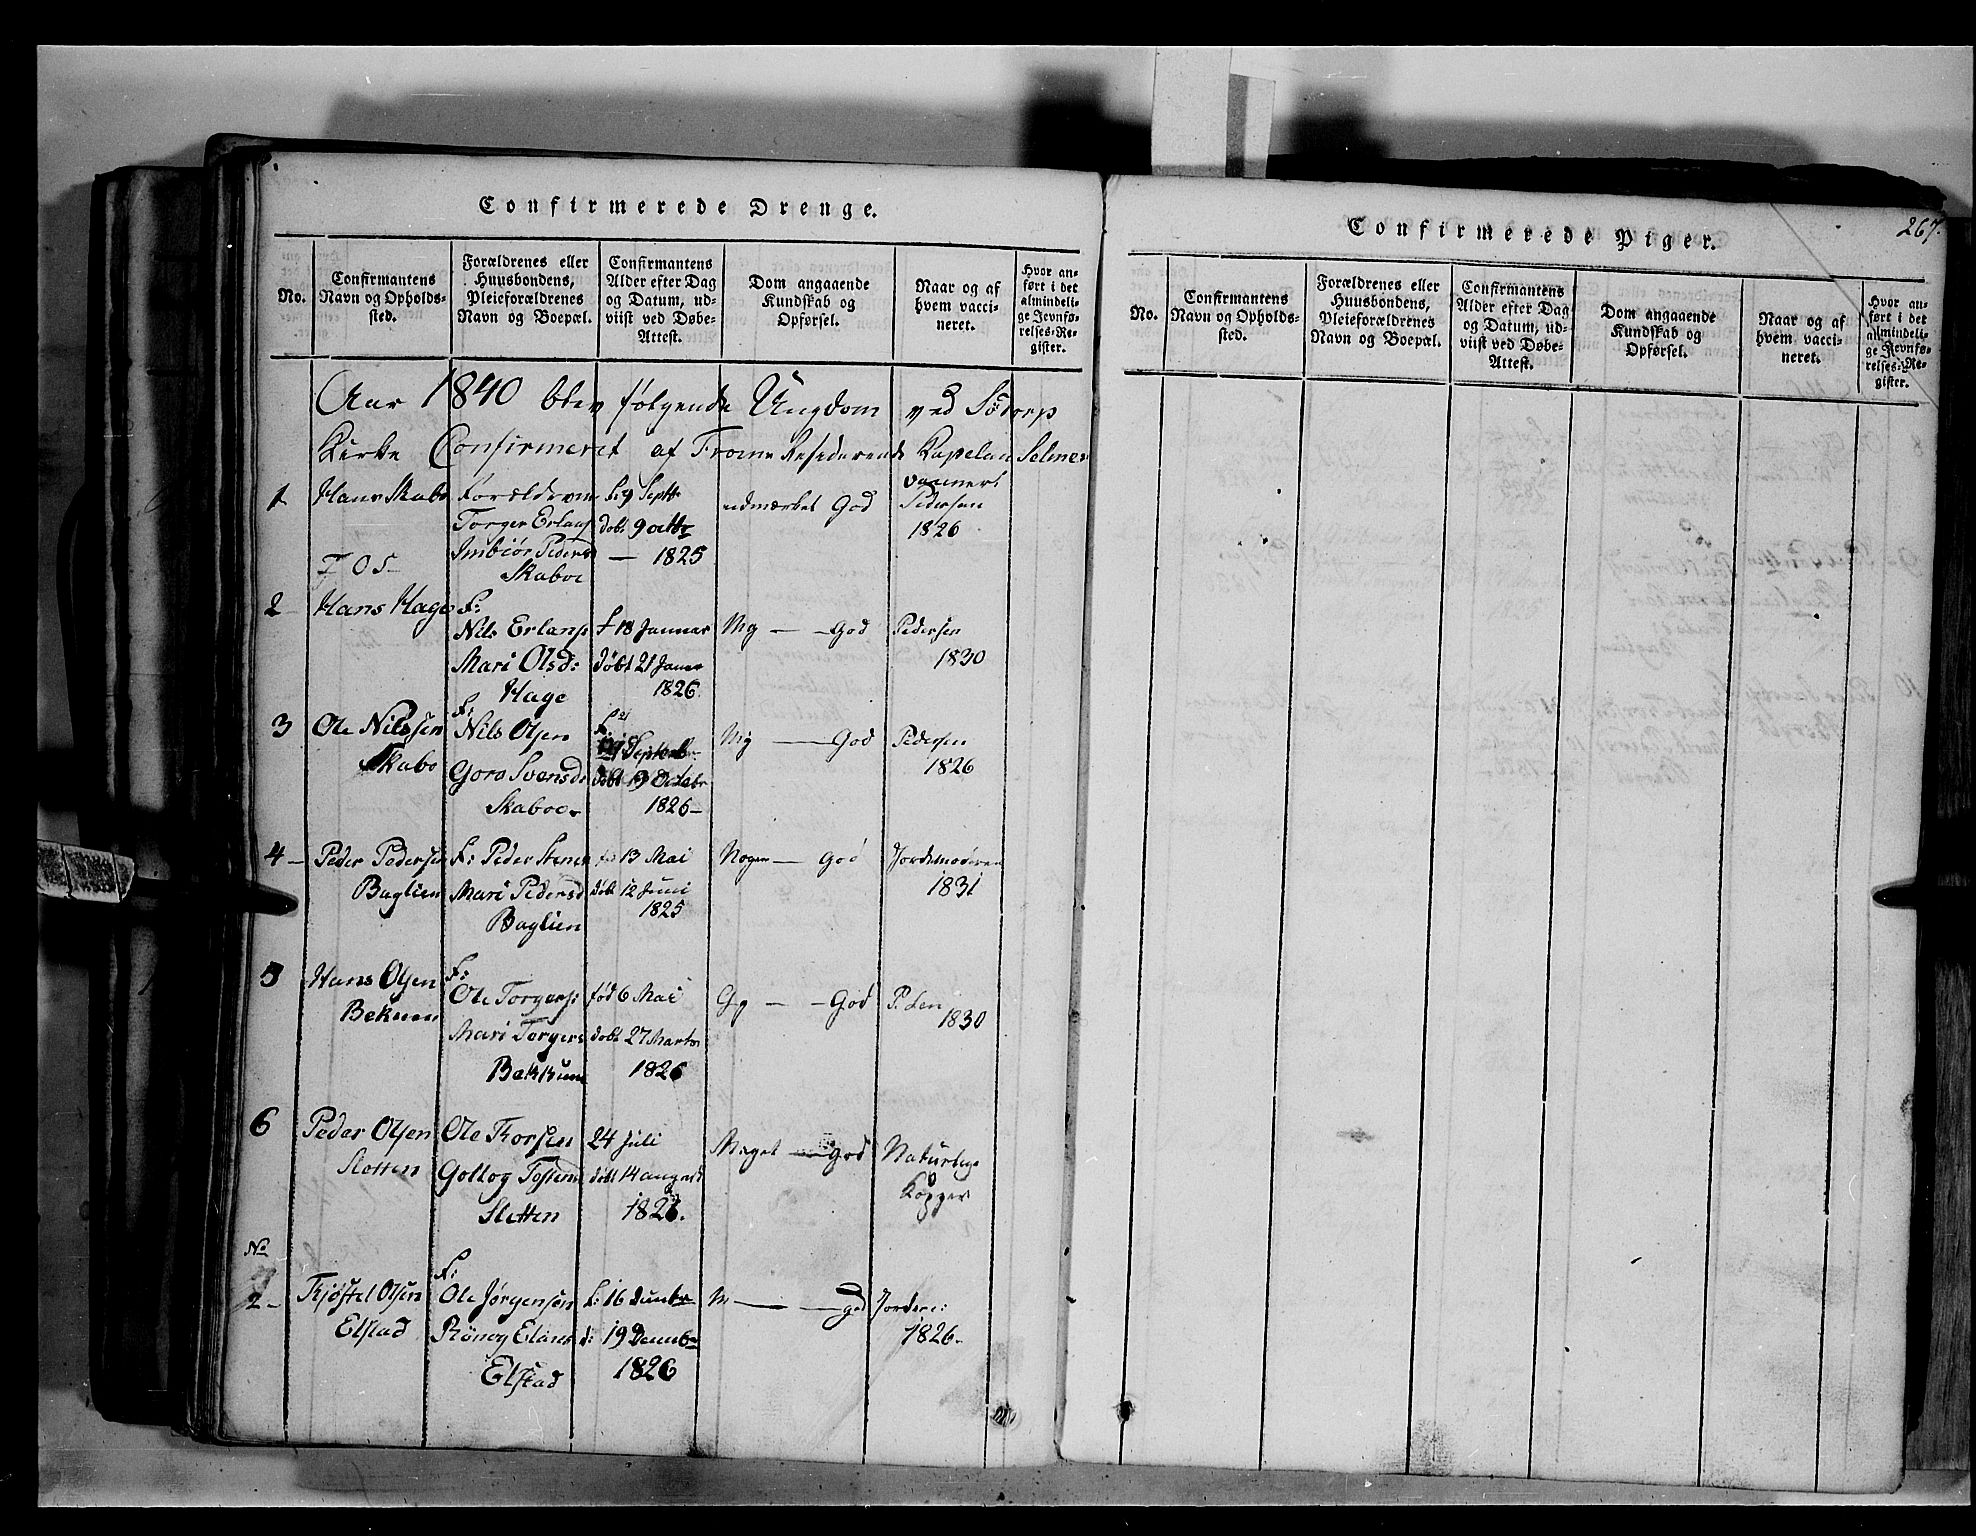 Confirmerede Drenge.
No.
Confirmantens
Navn og Opholds-
sted.
Forældrenes eller
Huusbondens,
Pleieforældrenes
Navn og Boepæl.
Confirmantens
Alder efter Dag
og Datum, ud-
viist ved Døbe-
Attest.
Dom angaaende
Kundskab og
Opførsel.
Naar og af
hvem vacci-
neret.
Hvor an-
ført i det
almindeli-
ge Jevnfø-
relses-Re-
gister.
Aar 1840 blev følgende Ungdom ved Södorp
Kirke Confirmeret af Residerende Kapelan Selmer
1
Hans Skabo
Forældrene
Torger Erlans
Imbiör Peders
Skaboe
9 Septr
döbt 9 octbr
— 1825
udmærket God
Pedersen
1826
2 —
Hans Hage
F:
Nils Erlans
Mari Olsd:
Hage
f 18 Januar
döbt 21 Janr
1826.
Mg — — God
Pedersen
1830
3
Ole Nilssen
Skabo
F:
Nils Olsen
Goro Svensd
Skaboe
F:
Septemb
döbt 19 Octobr
1826 —
Mg — God
Pedersen
1826
4 —
Peder Pedersen
Baglien
F: Peder Stener
Mari Pedersd
Baglien
13 Mai
döbt 12 Juni
1825
Nogen — God
Jordemoderen
1831
5
Hans Olsen
Bekum
F:
Ole Torgers:
Mari Torgers
Bekkum
föd 6 Mai
döbt 27 Marts
1826
Gg — — God
1830
6
Peder Olsen
Sletten
Ole Thorsen
Sletten
24 Juli
döbt 14 august
1826.
Meget — God
Naturlige
Kopper
No
2 —
Kjöstel Olsen
Elstad
F:
Ole Jørgensøn
Rönoy
Elstad
f: 16
d: 19 Decembr
1826
M — — god
1826 —
Confirmerede Piger.
267.
No.
Confirmantens
Navn og Opholds-
sted.
Forældrenes eller
Huusbondens,
Pleieforældrenes
Navn og Boepæl.
Confirmantens
Alder efter Dag
og Datum, ud-
viist ved Døbe-
Attest.
Dom angaaende
Kundskab og
Opførsel.
Naar og af
hvem vacci-
neret.
Hvor an-
ført i det
almindeli-
ge Jevnfø-
relses-Re-
gister.